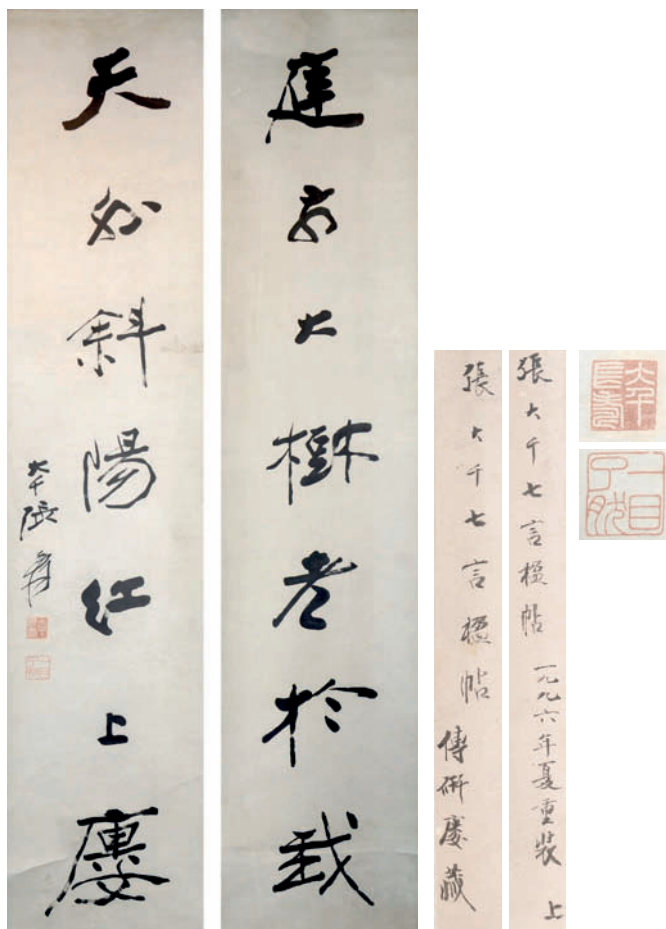 庭前大樹老於我
天外斜陽紅上廔
大千張爰
張大千七言楹帖 一九九六年夏重裝 上
張大千七言楹帖 傳研廔藏
大千長壽
一目了然